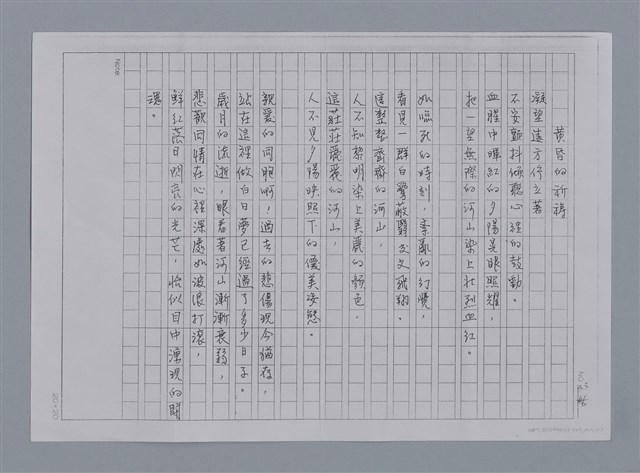 黃昏的祈禱
凝望遠方佇立著
不安顫抖傾聽心裡的鼓動。
血腥中暉紅的夕陽是眼照耀，
把一望無際的河山染上壯烈血紅。
如臨死的時刻，紊亂的幻覺，
看見一群白鷺蔽翳交文飛翔。
這整整齊齊的河山，
人不知黎明染上美麗的顏色。
這莊莊麗麗的河山，
人不見夕陽映照下的優美姿態。
親愛的同胞啊！過去的悲傷現今猶存，
站在這裡做白日夢已經過了多少日子。
歲月的流逝，眼看著河山漸漸衰弱，
悲歡同情在心裡深處如波浪打滾，
鮮紅落日閃亮的光芒，恰似目中湧現的閃
淚。
Note
20×20